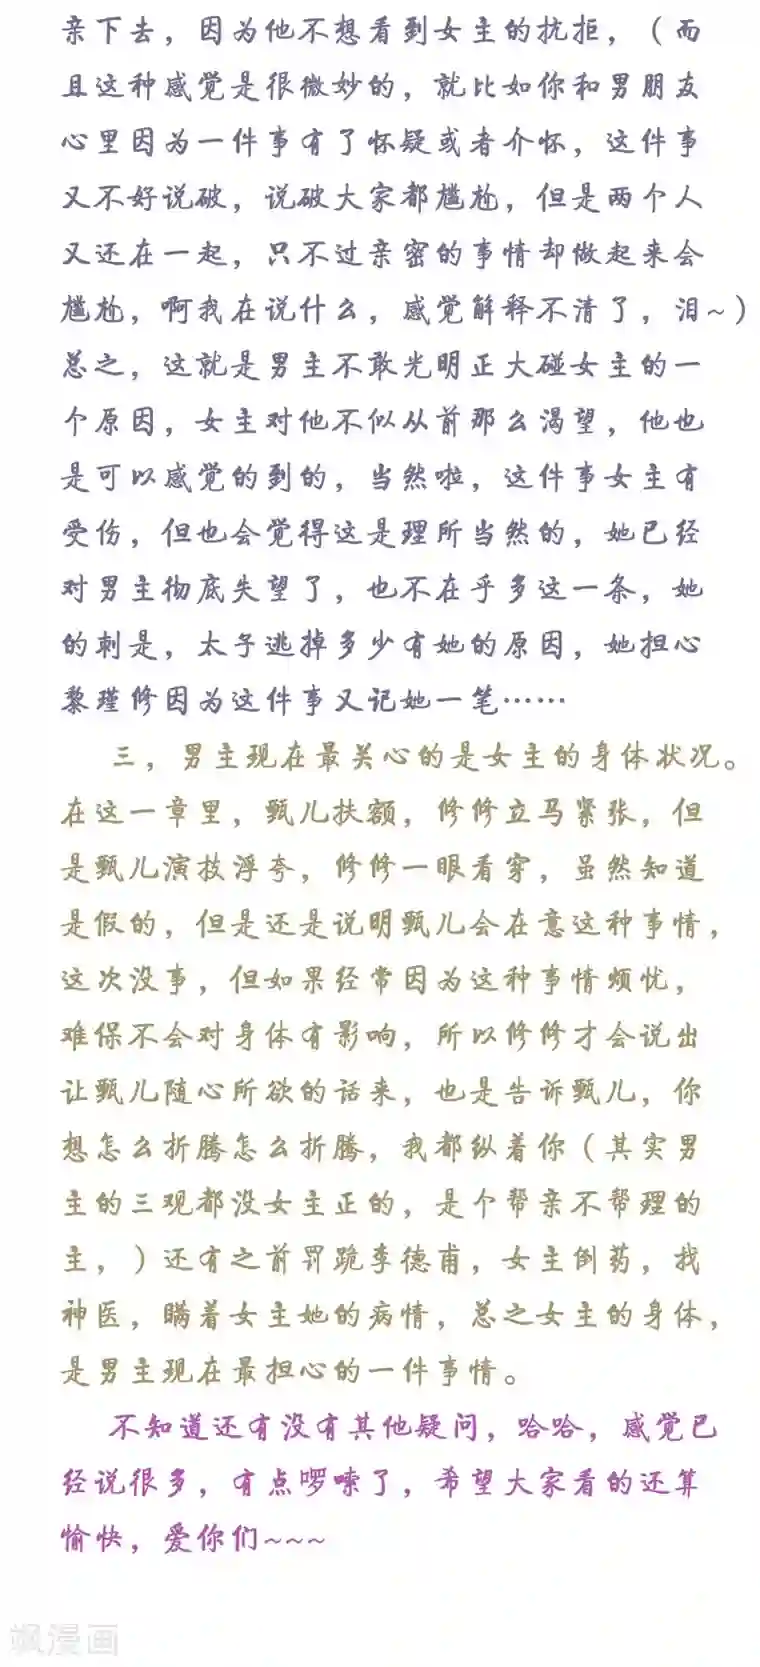 亲下去，因为他不想看到女主的抗拒，（而
且这种感觉是很微妙的，就比如你和男朋友
心里因为一件事有了怀疑或者介怀，这件事
又不好说破，说破大家都尴尬，但是两个人
又还在一起，只不过亲密的事情却做起来会
尴尬，啊我在说什么，感觉解释不清了，泪~）
总之，这就是男主不敢光明正大碰女主的一
个原因，女主对他不似从前那么渴望，他也
是可以感觉的到的，当然啦，这件事女主有
受伤，但也会觉得这是理所当然的，她已经
对男主彻底失望了，也不在乎多这一条，她
的刺是，太子逃掉多少有她的原因，她担心
黎瑾修因为这件事又记她一笔……
三，男主现在最关心的是女主的身体状况。
在这一章里，甄儿扶额，修修立马紧张，但
是甄儿演技浮夸，修修一眼看穿，虽然知道
是假的，但是还是说明甄儿会在意这种事情，
这次没事，但如果经常因为这种事情烦忧，
难保不会对身体有影响，所以修修才会说出
让甄儿随心所欲的话来，也是告诉甄儿，你
想怎么折腾怎么折腾，我都纵着你（其实男
主的三观都没女主正的，是个帮亲不帮理的
主，）还有之前罚跪李德甫，女主倒药，找
神医，瞒着女主她的病情，总之女主的身体，
是男主现在最担心的一件事情。
不知道还有没有其他疑问，哈哈，感觉已
经说很多，有点啰嗦了，希望大家看的还算
愉快，爱你们~~~
飒漫画